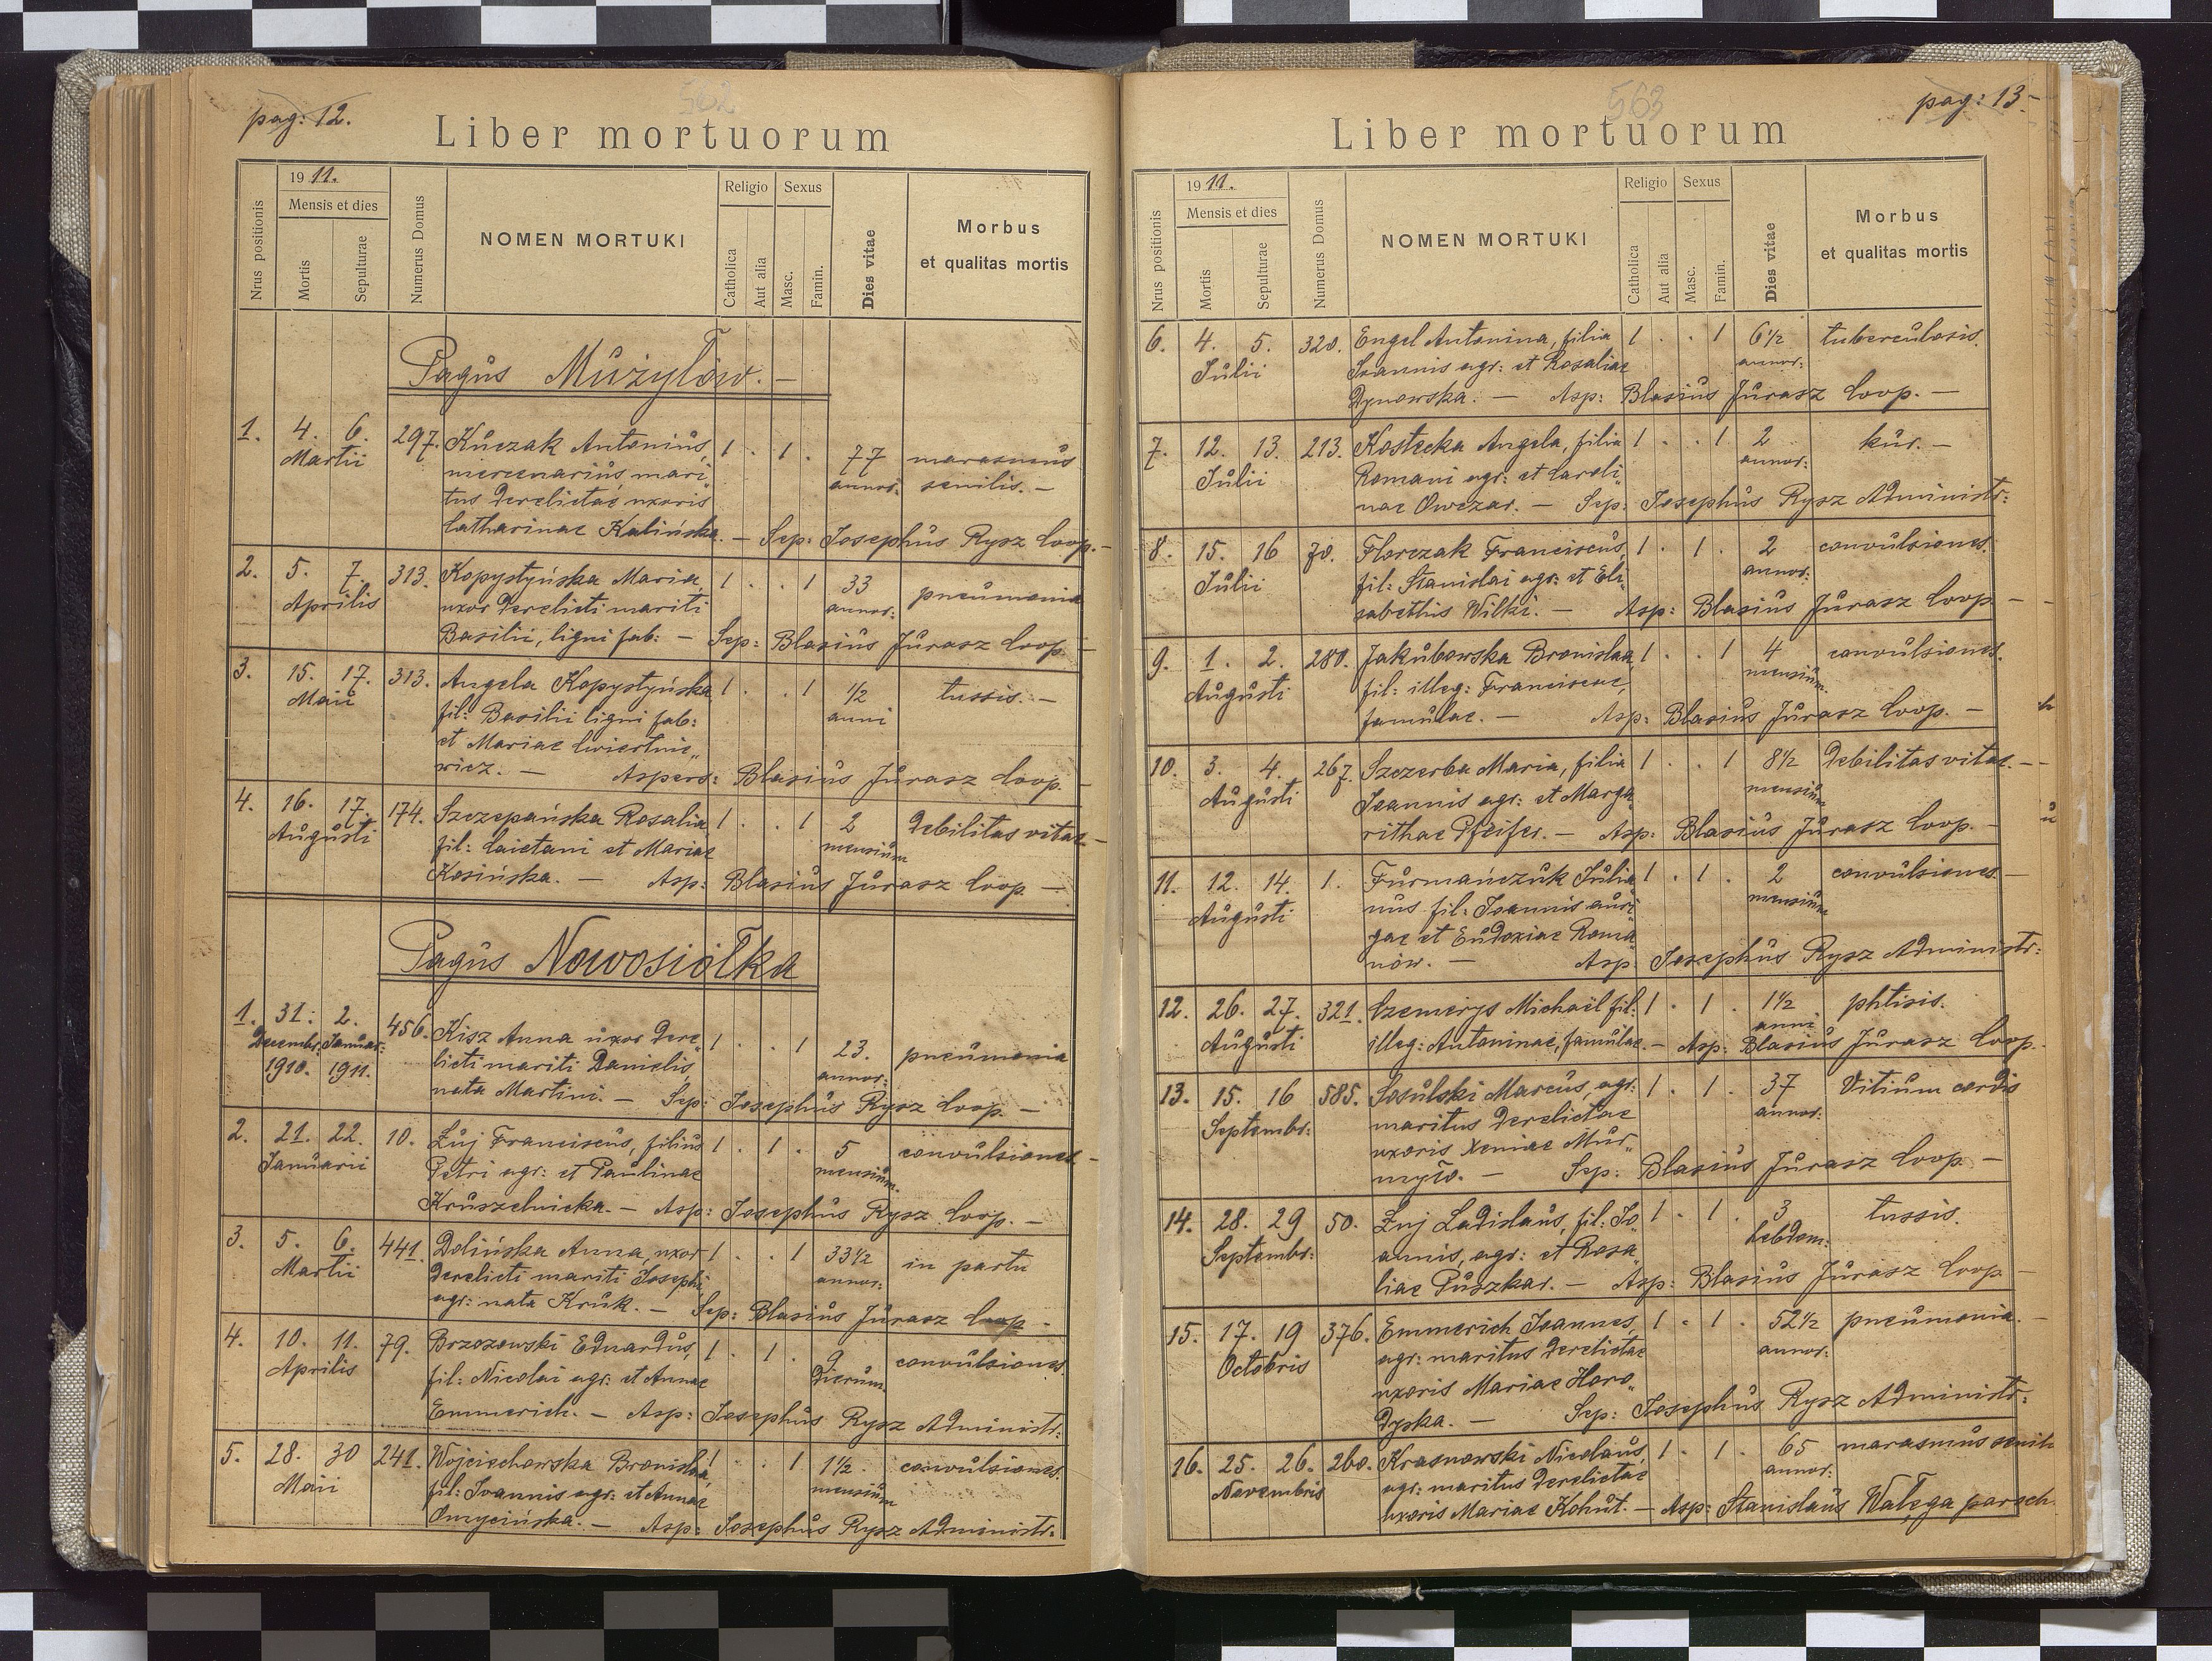 562
pag: 12.
Liber mortuorum
Nrus positionis
19 11.
Mensis et dies
Mortis
Sepulturae
Numerus Domus
NOMEN MORTUKI
Religio
Catholica
Aut alia
Sexus
Masc.
Famin.
Dies vitae
Morbus
et qualitas mortis
Pagus Mużyłów. –
1. 4. 6. 297. Kuczak Antonius, 1 · 1 · 77 marasmus
Martii mercenarius, mari„ annor: senilis. –
tus derelictae uxoris
Catharinae Kalińska. – Sep: Josephus Rysz Coop. –
2. 5. 7. 313. Kopystyńska Maria 1 · · 1 33 pneumonia
Aprilis uxor derelicti mariti annor:
Basilii, ligni fab: – Sep: Blasius Jurasz Coop. –
3. 15. 17. 313. Angela Kopystyńska 1 · · 1 1/2 tussis. –
Maii fil: Basilii ligni fab: anni
et Mariae Cwiertnie„
wicz. – Aspers: Blasius Jurasz Coop. –
4. 16. 17. 174. Szczepańska Rosalia 1 · · 1 2 debilitas vitae –
Augusti fil: Caietani et Mariae mensium
Kosińska. – Asp: Blasius Jurasz Coop –
Pagus Nowosiołka
1. 31: 2. 456. Kisz Anna uxor dere„ 1 · · 1 23. pneumonia
Decembr: Januar: licti mariti Danielis, annor:
1910. 1911. nata Martini. – Sep: Josephus Rysz Coop. –
2. 21. 22. 10. Żuj Franciscus, filius 1 · 1 · 5 convulsiones –
Januarii Petri agr: et Paulinae mensium.
Kruszelnicka. – Asp: Josephus Rysz Coop. –
3. 5. 6. 441. Dolińska Anna, uxor 1 · · 1 33 1/2 in partu
Martii derelicti mariti Josephi annor:
agr: nata Kruk. – Sep: Blasius Jurasz Coop –
4. 10. 11. 79. Brzozowski Eduardus, 1 · 1 · 9 convulsiones.
Aprilis fil: Nicolai agr: et Annae dierum.
Emmerich. – Asp: Josephus Rysz Administr:
5. 28. 30 241. Wojciechowska Bronisława 1 · · 1 1 1/2 convulsiones.
Maii fil: Joannis agr: et Annae mensium
Onycińska. – Asp: Josephus Rysz Administr:
563
pag: 13 –
Liber mortuorum
Nrus positionis
19 11.
Mensis et dies
Mortis
Sepulturae
Numerus Domus
NOMEN MORTUKI
Religio
Catholica
Aut alia
Sexus
Masc.
Famin.
Dies vitae
Morbus
et qualitas mortis
6. 4. 5. 320. Engel Antonina, filia 1 · · 1 6 1/2 tuberculosis.
Julii Joannis agr: et Rosaliae annor:
Dynowska. – Asp: Blasius Jurasz Coop. –
7. 12. 13. 213. Kostecka Angela, filia 1 · · 1 2 kur. –
Julii Romani agr: et Caroli„ annor:
nae Owczar. – Sep: Josephus Rysz Administr:
8. 15. 16 70. Florczak Franciscus, 1 · 1 · 2 convulsiones.
Julii fil: Stanislai agr: et Eli„ annor:
sabethis Wilki. – Asp: Blasius Jurasz Coop –
9. 1. 2. 280. Jakubowska Bronislaa, 1 · · 1 4 convulsiones.
Augusti fil: illeg: Franciscae, mensium.
famulae. – Asp: Blasius Jurasz Coop. –
10. 3. 4. 267. Szczerba Maria, filia 1 · · 1 8 1/2 debilitas vitae. –
Augusti Joannis agr: et Marga„ mensium
rithae Pfeifer. – Asp: Blasius Jurasz Coop. –
11. 12. 14. 1. Furmańczuk Julia„ 1 · 1 · 2 convulsiones –
Augusti nus fil: Joannis auri„ mensium
gae et Eudoxiae Roma„
nów. – Asp: Josephus Rysz Administr:
12. 26. 27. 321. Czemerys Michaël fil: 1 · 1 · 1 1/2 phtisis.
Augusti illeg: Antoninae, famulae. – anni Asp: Blasius Jurasz Coop.
13. 15. 16 585. Sosulski Marcus, agr: 1 · 1 · 37 Vitium cordis
Septembr: maritus derelictae annor:
uxoris Xeniae Mur„
myło. – Sep: Blasius Jurasz Coop –
14. 28. 29 50. Żuj Ladislaus, fil: Jo„ 1 · 1 · 3 tussis.
Septembr: annis, agr: et Rosa„ hebdom:
liae Puszkar. – Asp: Blasius Jurasz Coop –
15. 17. 19 376. Emmerich Joannes, 1 · 1 · 52 1/2 pneumonia. –
Octobris agr: maritus derelictae annor:
uxoris Mariae Horo„
dyska. – Sep: Josephus Rysz Administr:
16. 25. 26. 260. Krasnowski Nicolaus, 1 · 1 · 65 marasmus senil
Novembris agr: maritus derelictae annor:
uxoris Mariae Kohut. – Asp: Stanislaus Wałęga paroch